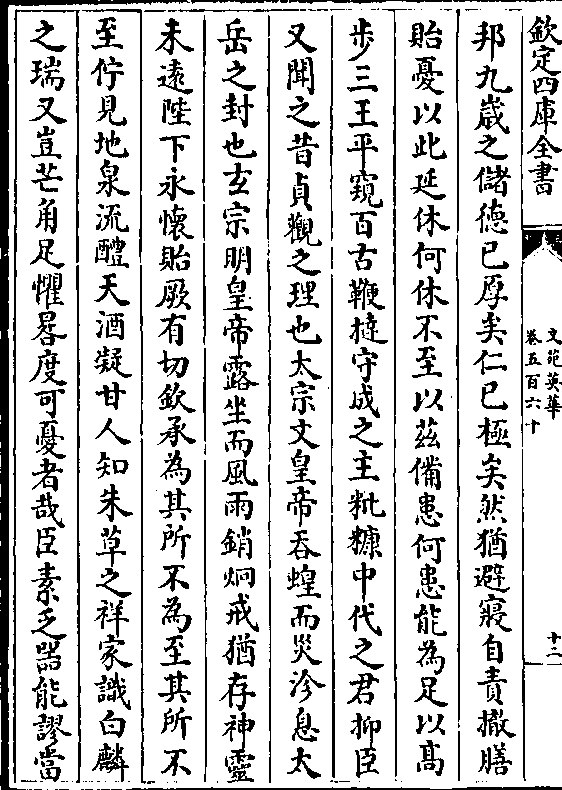 欽定四庫全書
文苑英華
卷五百六十
十二
邦九歲之儲德已厚矣仁已極矣然猶避寢自責撤膳
貽憂以此延休何休不至以茲備患何患能為足以髙
步三王平窺百古鞭撻守成之主粃糠中代之君抑臣
又聞之昔貞觀之理也太宗文皇帝吞蝗而災沴息太
岳之封也𤣥宗明皇帝露坐而風雨銷炯戒猶存神靈
未逺陛下永懷貽厥有切欽承為其所不為至其所不
至佇見地泉流醴天酒凝甘人知朱草之祥家識白麟
之瑞又豈芒角足懼晷度可憂者哉臣素乏器能謬當